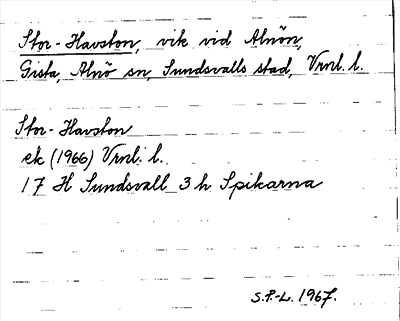 Stor-Havston, vik vid Alnön,
Gista, Alnö sn, Sundsvalls stad, Vrnl. l.
Stor-Havston
ek (1966) Vrnl. l.
17 H Sundsvall 3 h Spikarna
S.P.-L. 1967.